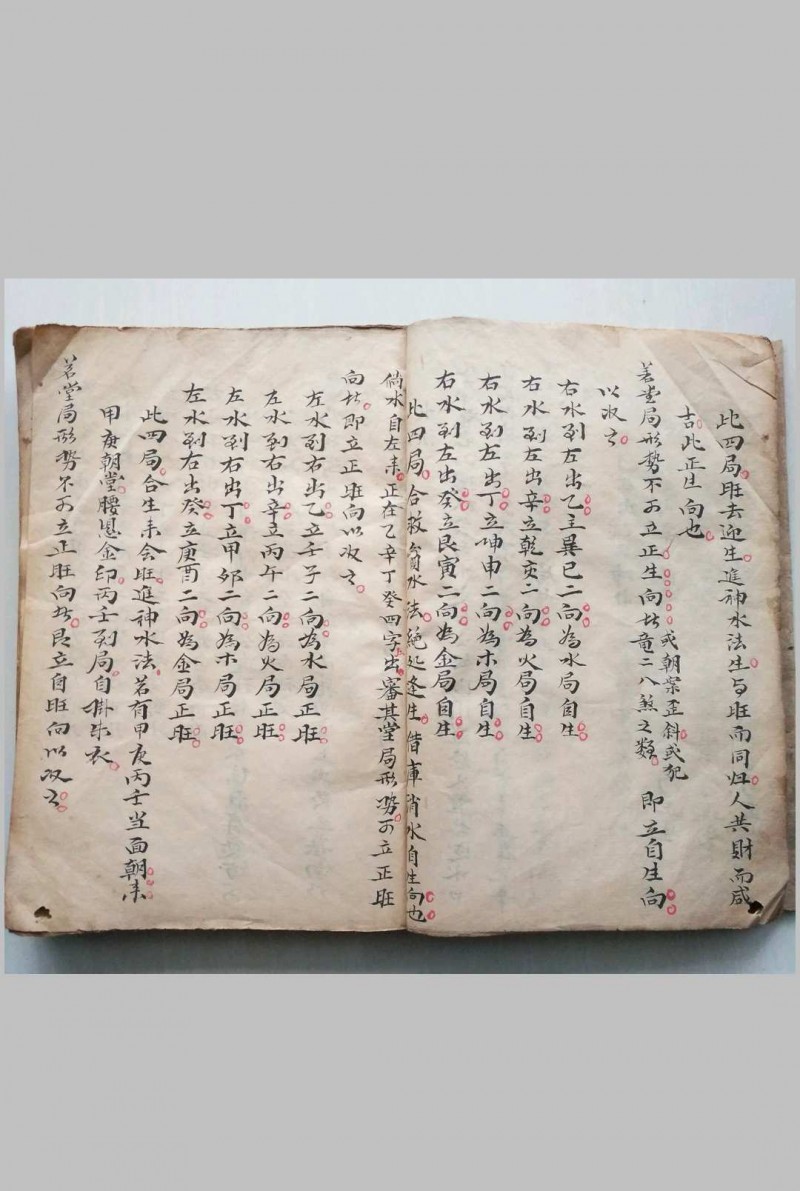 此四局旺去迎生進神水法生与旺而同归人共財而咸
吉此正生向也
若堂局形势不可立正生向者
或朝案歪斜或犯
竜二八煞之類
即立自生向
以收之
右水到左出乙立巽巳二向為水局自生
右水到左出辛立乾亥二向為火局自生
右水到左出丁立坤申二向為木局自生
右水到左出癸立艮寅二向為金局自生
此四局合救貧水法絕処逢生借庫消水自生向也
倘水自左来正在乙辛丁癸四字出審其堂局形势可立正旺
向者即立正旺向以收之
左水到右出乙立壬子二向為水局正旺
左水到右出辛立丙午二向為火局正旺
左水到右出丁立甲卯二向為木局正旺
左水到右出癸立庚酉二向為金局正旺
此四局合生来会旺進神水法若有甲庚丙壬当面朝来
甲庚朝堂腰悬金印丙壬到局自掛朱衣
若堂局形势不可立正旺向者立自旺向以收之